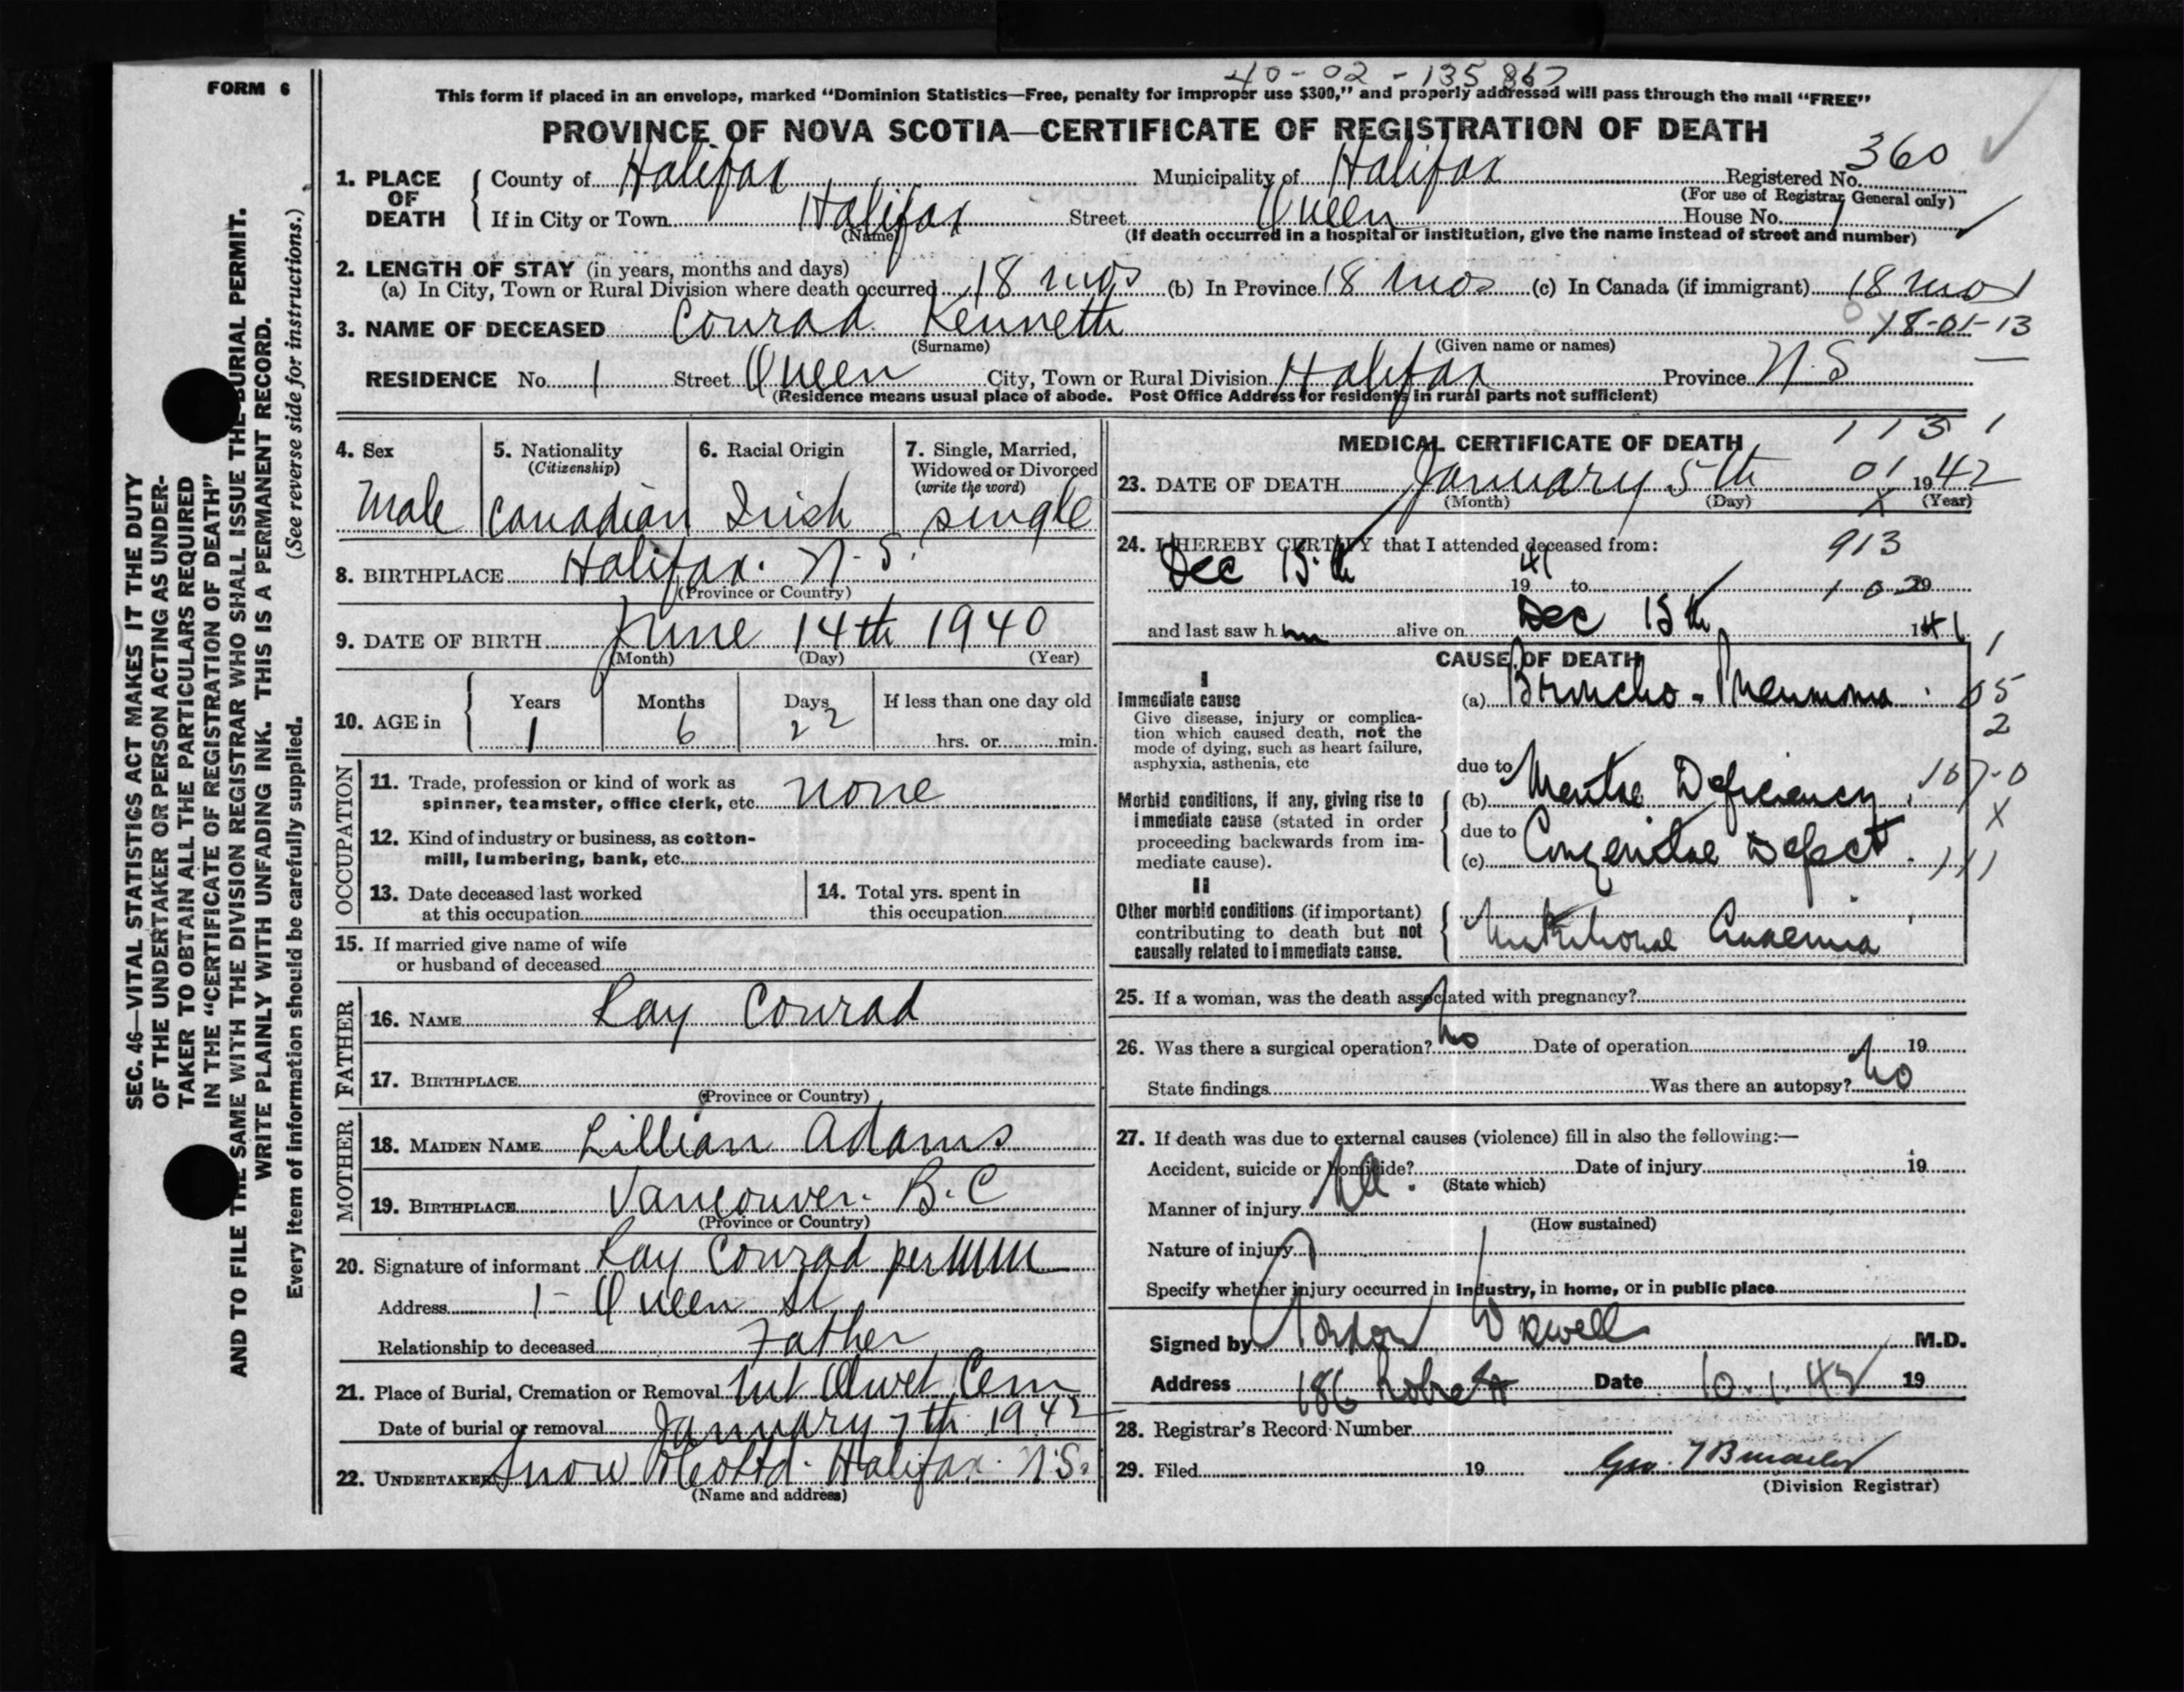 40-02-135867
FORM 6
This form if placed in an envelope, marked "Dominion Statistics—Free, penalty for improper use $300," and properly addressed will pass through the mail "FREE"
PROVINCE OF NOVA SCOTIA—CERTIFICATE OF REGISTRATION OF DEATH
360
1. PLACE OF DEATH
County of Halifax Municipality of Halifax Registered No.
(For use of Registrar General only)
If in City or Town Halifax Street Queen House No. 1
(Name) (If death occurred in a hospital or institution, give the name instead of street and number)
2. LENGTH OF STAY (in years, months and days)
(a) In City, Town or Rural Division where death occurred 18 mos (b) In Province 18 mos (c) In Canada (if immigrant) 18 mos
3. NAME OF DECEASED Conrad Kenneth 18-01-13
(Surname) (Given name or names)
RESIDENCE No. 1 Street Queen City, Town or Rural Division Halifax Province N.S
(Residence means usual place of abode. Post Office Address for residents in rural parts not sufficient)
4. Sex Male
5. Nationality (Citizenship) Canadian
6. Racial Origin Irish
7. Single, Married, Widowed or Divorced (write the word) single
8. BIRTHPLACE Halifax. N.S.
(Province or Country)
9. DATE OF BIRTH June 14th 1940
(Month) (Day) (Year)
10. AGE in Years 1 Months 6 Days 22 If less than one day old hrs. or min.
OCCUPATION
11. Trade, profession or kind of work as
spinner, teamster, office clerk, etc. none
12. Kind of industry or business, as cotton-
mill, lumbering, bank, etc.
13. Date deceased last worked
at this occupation
14. Total yrs. spent in
this occupation
15. If married give name of wife
or husband of deceased
FATHER
16. NAME Ray Conrad
17. BIRTHPLACE
(Province or Country)
MOTHER
18. MAIDEN NAME Lillian Adams
19. BIRTHPLACE Vancouver. B.C
(Province or Country)
20. Signature of informant Ray Conrad per
Address 1 - Queen St
Relationship to deceased Father
21. Place of Burial, Cremation or Removal Mt Olivet Cem
Date of burial or removal January 7th 1942
22. UNDERTAKER Snow & Co Ltd. Halifax. N.S.
(Name and address)
MEDICAL CERTIFICATE OF DEATH
113 1
23. DATE OF DEATH January 5th 01 1942
(Month) (Day) (Year)
24. I HEREBY CERTIFY that I attended deceased from: 913
Dec 15th 1941 to 19
and last saw h im alive on Dec 15th 1941
CAUSE OF DEATH
I
Immediate cause
Give disease, injury or complica-
tion which caused death, not the
mode of dying, such as heart failure,
asphyxia, asthenia, etc
(a) Broncho-Pneumonia
due to
Morbid conditions, if any, giving rise to
immediate cause (stated in order
proceeding backwards from im-
mediate cause).
(b) Mental Deficiency
due to
(c) Congenital Defect
1
05
2
107-0
X
111
II
Other morbid conditions (if important)
contributing to death but not
causally related to immediate cause.
Nutritional Anaemia
25. If a woman, was the death associated with pregnancy?
26. Was there a surgical operation? no Date of operation 19
State findings Was there an autopsy? no
27. If death was due to external causes (violence) fill in also the following:—
Accident, suicide or homicide? Date of injury 19
(State which)
Manner of injury
(How sustained)
Nature of injury
Specify whether injury occurred in industry, in home, or in public place
Signed by Gordon M.D.
Address 186 Date 10.1.42 19
28. Registrar's Record Number
29. Filed 19 Geo.
(Division Registrar)
SEC. 46—VITAL STATISTICS ACT MAKES IT THE DUTY
OF THE UNDERTAKER OR PERSON ACTING AS UNDER-
TAKER TO OBTAIN ALL THE PARTICULARS REQUIRED
IN THE "CERTIFICATE OF REGISTRATION OF DEATH"
AND TO FILE THE SAME WITH THE DIVISION REGISTRAR WHO SHALL ISSUE THE BURIAL PERMIT.
WRITE PLAINLY WITH UNFADING INK. THIS IS A PERMANENT RECORD.
Every item of information should be carefully supplied. (See reverse side for instructions.)